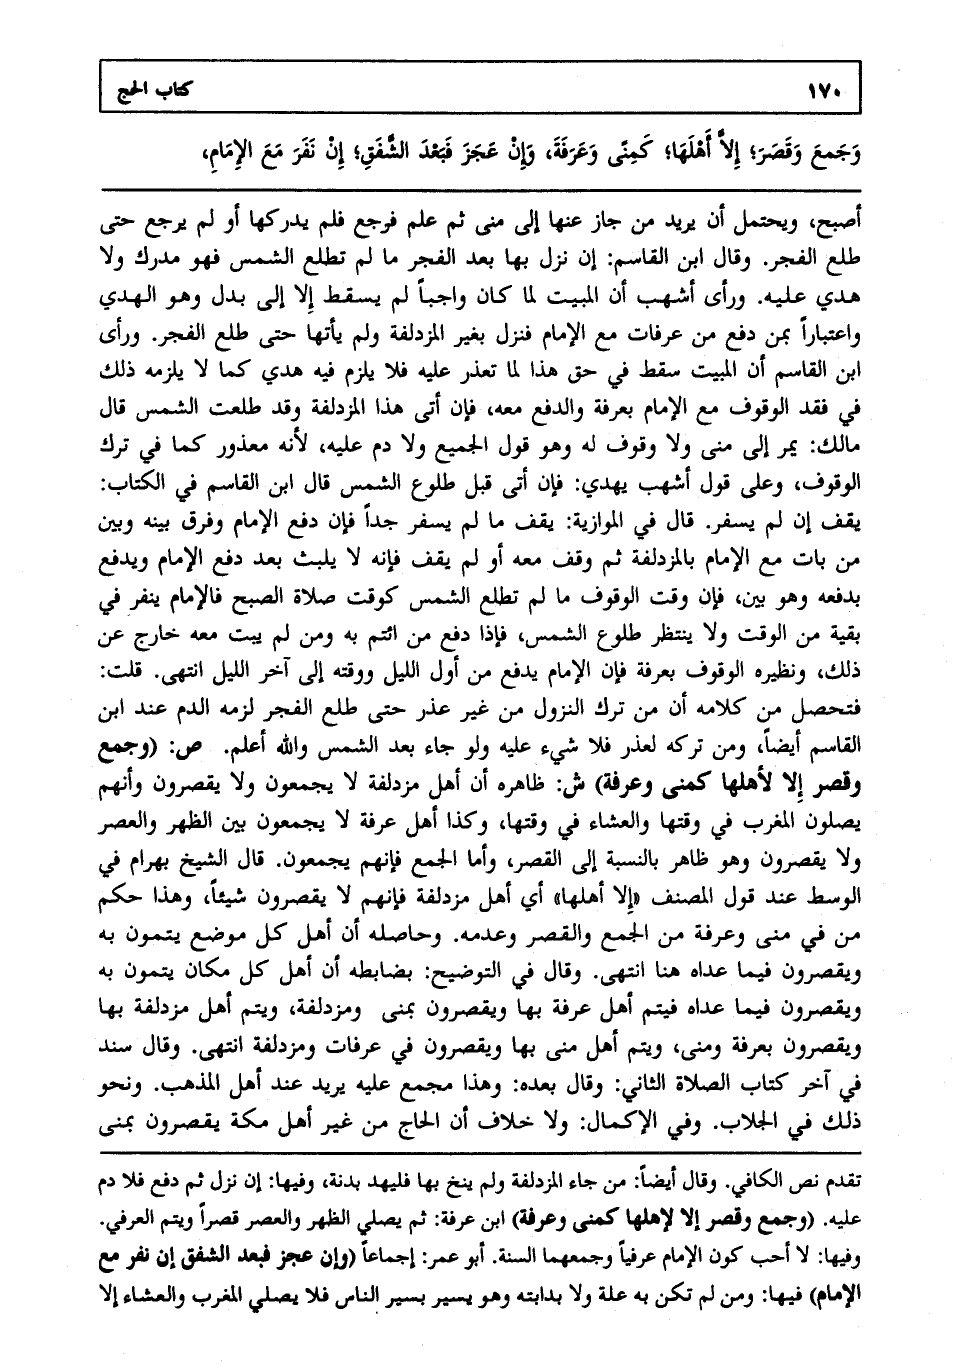 ١٧٠ كتاب الحج
وَجَمعَ وَقَصَرَ؛ إِلاَّ أَهْلَهَا؛ كَمِنًى وَعَرفَةَ، وَإِنْ عَجَزَ فَبَعْدَ الشَّفَقِ؛ إِنْ نَفَرَ مَعَ الإِمَامِ،
أصبح، ويحتمل أن يريد من جاز عنها إلى منى ثم علم فرجع فلم يدركها أو لم يرجع حتى
طلع الفجر. وقال ابن القاسم: إن نزل بها بعد الفجر ما لم تطلع الشمس فهو مدرك ولا
هدي عليه. ورأى أشهب أن المبيت لما كان واجباً لم يسقط إلا إلى بدل وهو الهدي
واعتباراً بمن دفع من عرفات مع الإمام فنزل بغير المزدلفة ولم يأتها حتى طلع الفجر. ورأى
ابن القاسم أن المبيت سقط في حق هذا لما تعذر عليه فلا يلزم فيه هدي كما لا يلزمه ذلك
في فقد الوقوف مع الإمام بعرفة والدفع معه، فإن أتى هذا المزدلفة وقد طلعت الشمس قال
مالك: يمر إلى منى ولا وقوف له وهو قول الجميع ولا دم عليه، لأنه معذور كما في ترك
الوقوف، وعلى قول أشهب يهدي: فإن أتى قبل طلوع الشمس قال ابن القاسم في الكتاب:
يقف إن لم يسفر. قال في الموازية: يقف ما لم يسفر جداً فإن دفع الإمام وفرق بينه وبين
من بات مع الإمام بالمزدلفة ثم وقف معه أو لم يقف فإنه لا يلبث بعد دفع الإمام ويدفع
بدفعه وهو بين، فإن وقت الوقوف ما لم تطلع الشمس كوقت صلاة الصبح فالإمام ينفر في
بقية من الوقت ولا ينتظر طلوع الشمس، فإذا دفع من ائتم به ومن لم يبت معه خارج عن
ذلك، ونظيره الوقوف بعرفة فإن الإمام يدفع من أول الليل ووقته إلى آخر الليل انتهى. قلت:
فتحصل من كلامه أن من ترك النزول من غير عذر حتى طلع الفجر لزمه الدم عند ابن
القاسم أيضاً، ومن تركه لعذر فلا شيء عليه ولو جاء بعد الشمس والله أعلم. ص: (وجمع
وقصر إلا لأهلها كمنى وعرفة) ش: ظاهره أن أهل مزدلفة لا يجمعون ولا يقصرون وأنهم
يصلون المغرب في وقتها والعشاء في وقتها، وكذا أهل عرفة لا يجمعون بين الظهر والعصر
ولا يقصرون وهو ظاهر بالنسبة إلى القصر، وأما الجمع فإنهم يجمعون. قال الشيخ بهرام في
الوسط عند قول المصنف «إلا أهلها» أي أهل مزدلفة فإنهم لا يقصرون شيئاً، وهذا حكم
من في منى وعرفة من الجمع والقصر وعدمه. وحاصله أن أهل كل موضع يتمون به
ويقصرون فيما عداه هنا انتهى. وقال في التوضيح: بضابطه أن أهل كل مكان يتمون به
ويقصرون فيما عداه فيتم أهل عرفة بها ويقصرون بمنى ومزدلفة، ويتم أهل مزدلفة بها
ويقصرون بعرفة ومنى، ويتم أهل منى بها ويقصرون في عرفات ومزدلفة انتهى. وقال سند
في آخر كتاب الصلاة الثاني: وقال بعده: وهذا مجمع عليه يريد عند أهل المذهب. ونحو
ذلك في الجلاب. وفي الإكمال: ولا خلاف أن الحاج من غير أهل مكة يقصرون بمنى
تقدم نص الكافي. وقال أيضاً: من جاء المزدلفة ولم ينخ بها فليهد بدنة، وفيها: إن نزل ثم دفع فلا دم
عليه. (وجمع وقصر إلا لإهلها كمنى وعرفة) ابن عرفة: ثم يصلي الظهر والعصر قصراً ويتم العرفي.
وفيها: لا أحب كون الإمام عرفياً وجمعهما السنة. أبو عمر: إجماعاً (وإن عجز فبعد الشفق إن نفر مع
الإمام) فيها: ومن لم تكن به علة ولا بدابته وهو يسير بسير الناس فلا يصلي المغرب والعشاء إلا